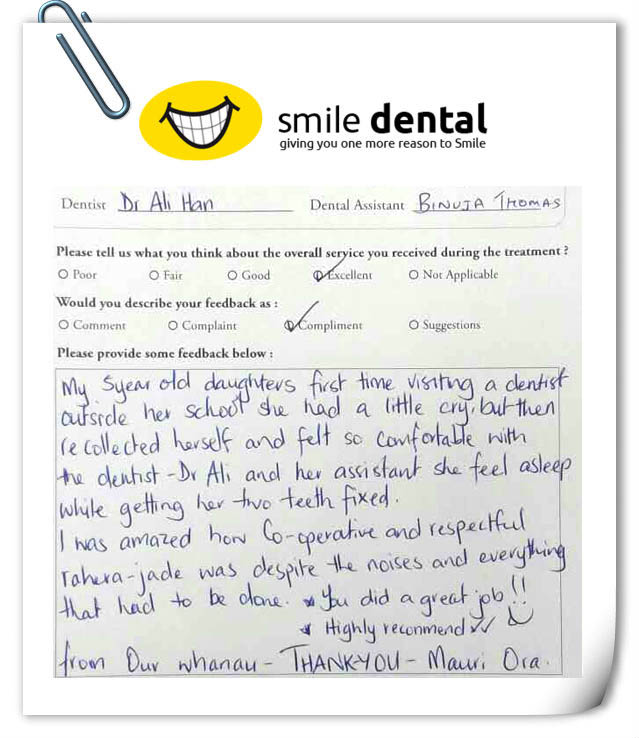 smile dental
giving you one more reason to Smile
Dentist Dr Ali Han Dental Assistant BINUJA THOMAS
Please tell us what you think about the overall service you received during the treatment ?
Poor Fair Good Excellent Not Applicable
Would you describe your feedback as :
Comment Complaint Compliment Suggestions
Please provide some feedback below :
My 5year old daughters first time visiting a dentist
outside her school she had a little cry, but then
recollected herself and felt so comfortable with
the dentist - Dr Ali and her assistant she feel asleep
while getting her two teeth fixed.
I was amazed how Co-operative and respectful
rahera-jade was despite the noises and everything
that had to be done. * You did a great job!!
* Highly recommend ✓✓
from Our whanau - THANKYOU - Mauri Ora.